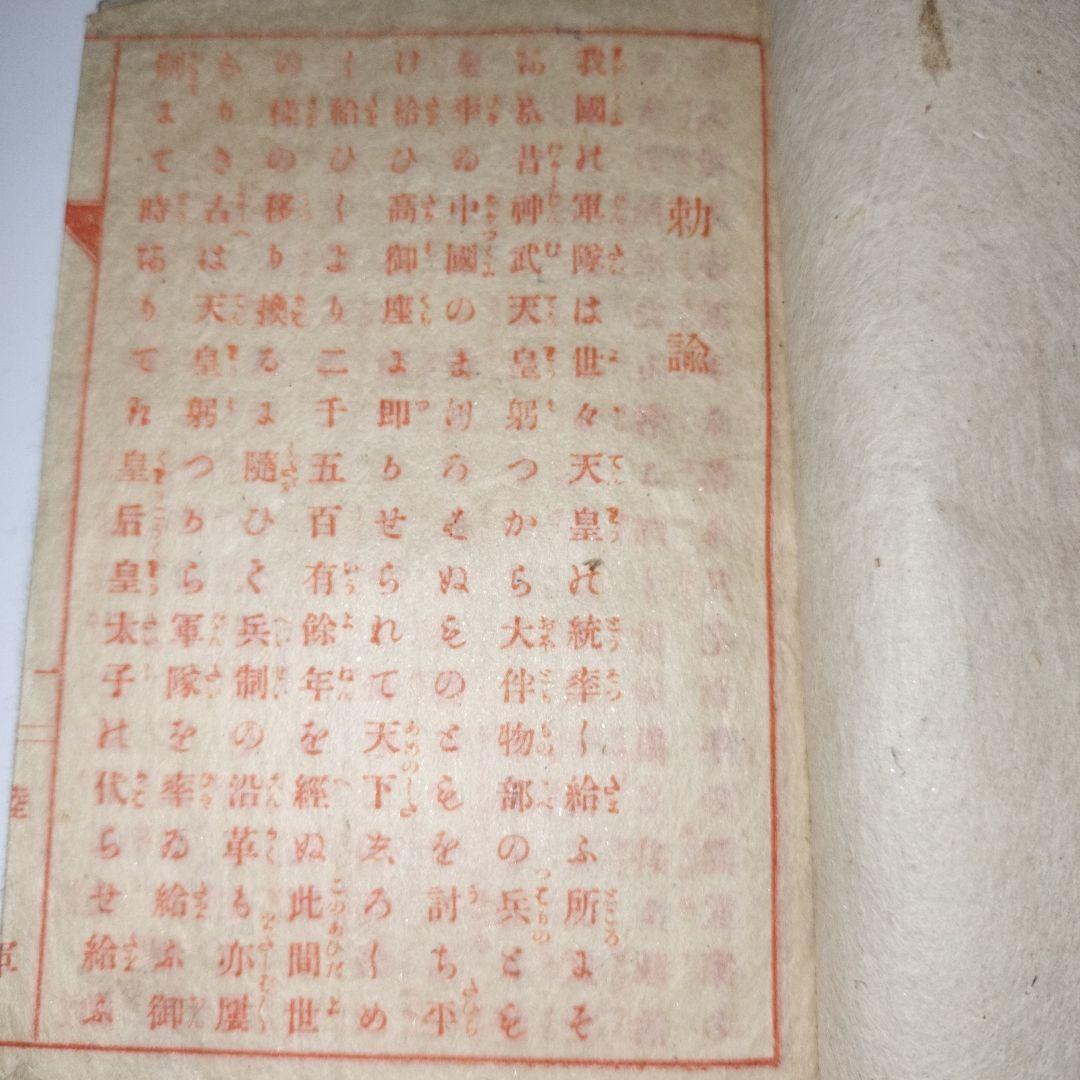 勅諭
我國の軍隊は世々天皇の統率し給ふ所にそ
ある昔神武天皇躬つから大伴物部の兵とも
を率ゐ中國のまつろはぬものともを討ち平
け給ひ高御座に即かせられて天下しろしめ
し給ひしより二千五百有餘年を經ぬ此間世
の樣の移り換るに隨ひて兵制の沿革も亦屢
なりき古は天皇躬つから軍隊を率ゐ給ふ御
制にて時ありては皇后皇太子の代らせ給ふ
一
陸軍